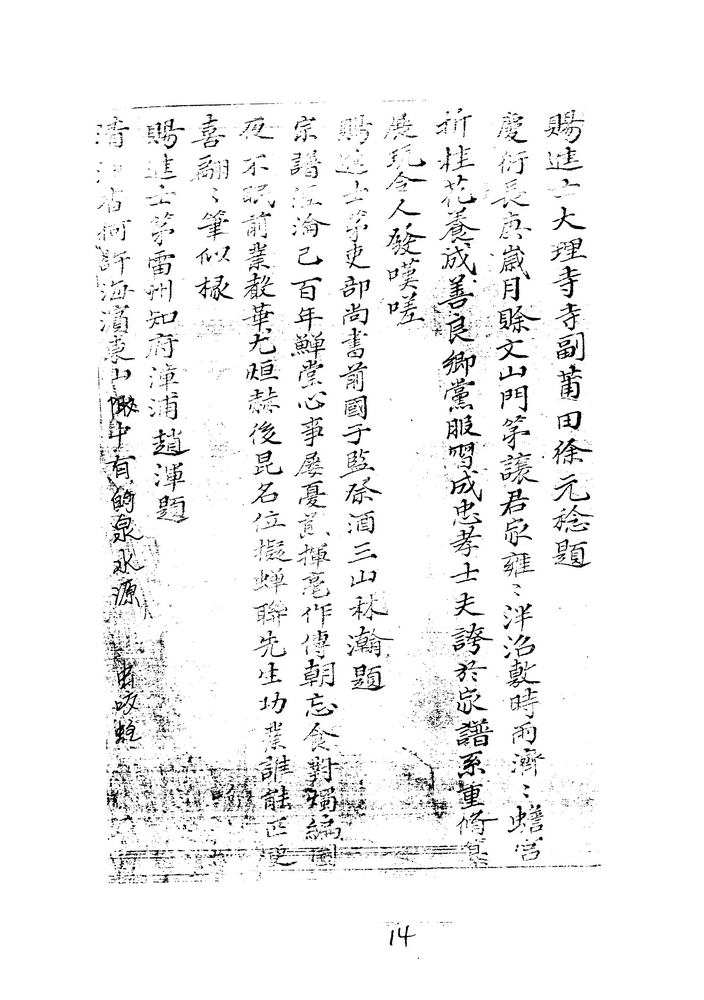 賜進士大理寺寺副莆田徐元稔題
慶衍長庚歲月賒文山門第讓君家雍〻泮沼敷時雨濟〻蟾宮
折桂花養成善良鄉黨服習成忠孝士夫誇於家譜系重脩
展玩令人發嘆嗟
賜進士第吏部尚書前國子監祭酒三山林瀚題
宗譜湮淪已百年鱓堂心事屢憂煎揮毫作傳朝忘食對燭編
夜不眠前業敷華尤烜赫後昆名位擬蟬聯先生功業誰能匹更
喜翩〻筆似椽
賜進士第雷州知府漳浦趙渾題
清 何許海濱東山 中有 泉水源
14